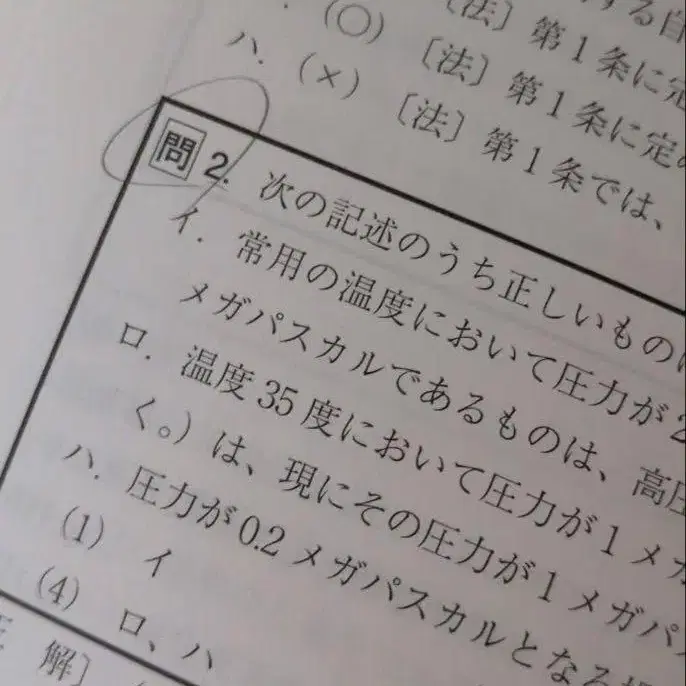 (○) 〔法〕第1条に定
ハ. (×) 〔法〕第1条に定め
〔法〕第1条では、
問2. 次の記述のうち正しいものは
イ. 常用の温度において圧力が2
メガパスカルであるものは、高圧
ロ. 温度35度において圧力が1メガ
く。)は、現にその圧力が1メガパ
ハ. 圧力が0.2メガパスカルとなる
(1) イ
(4) ロ、ハ
解〕